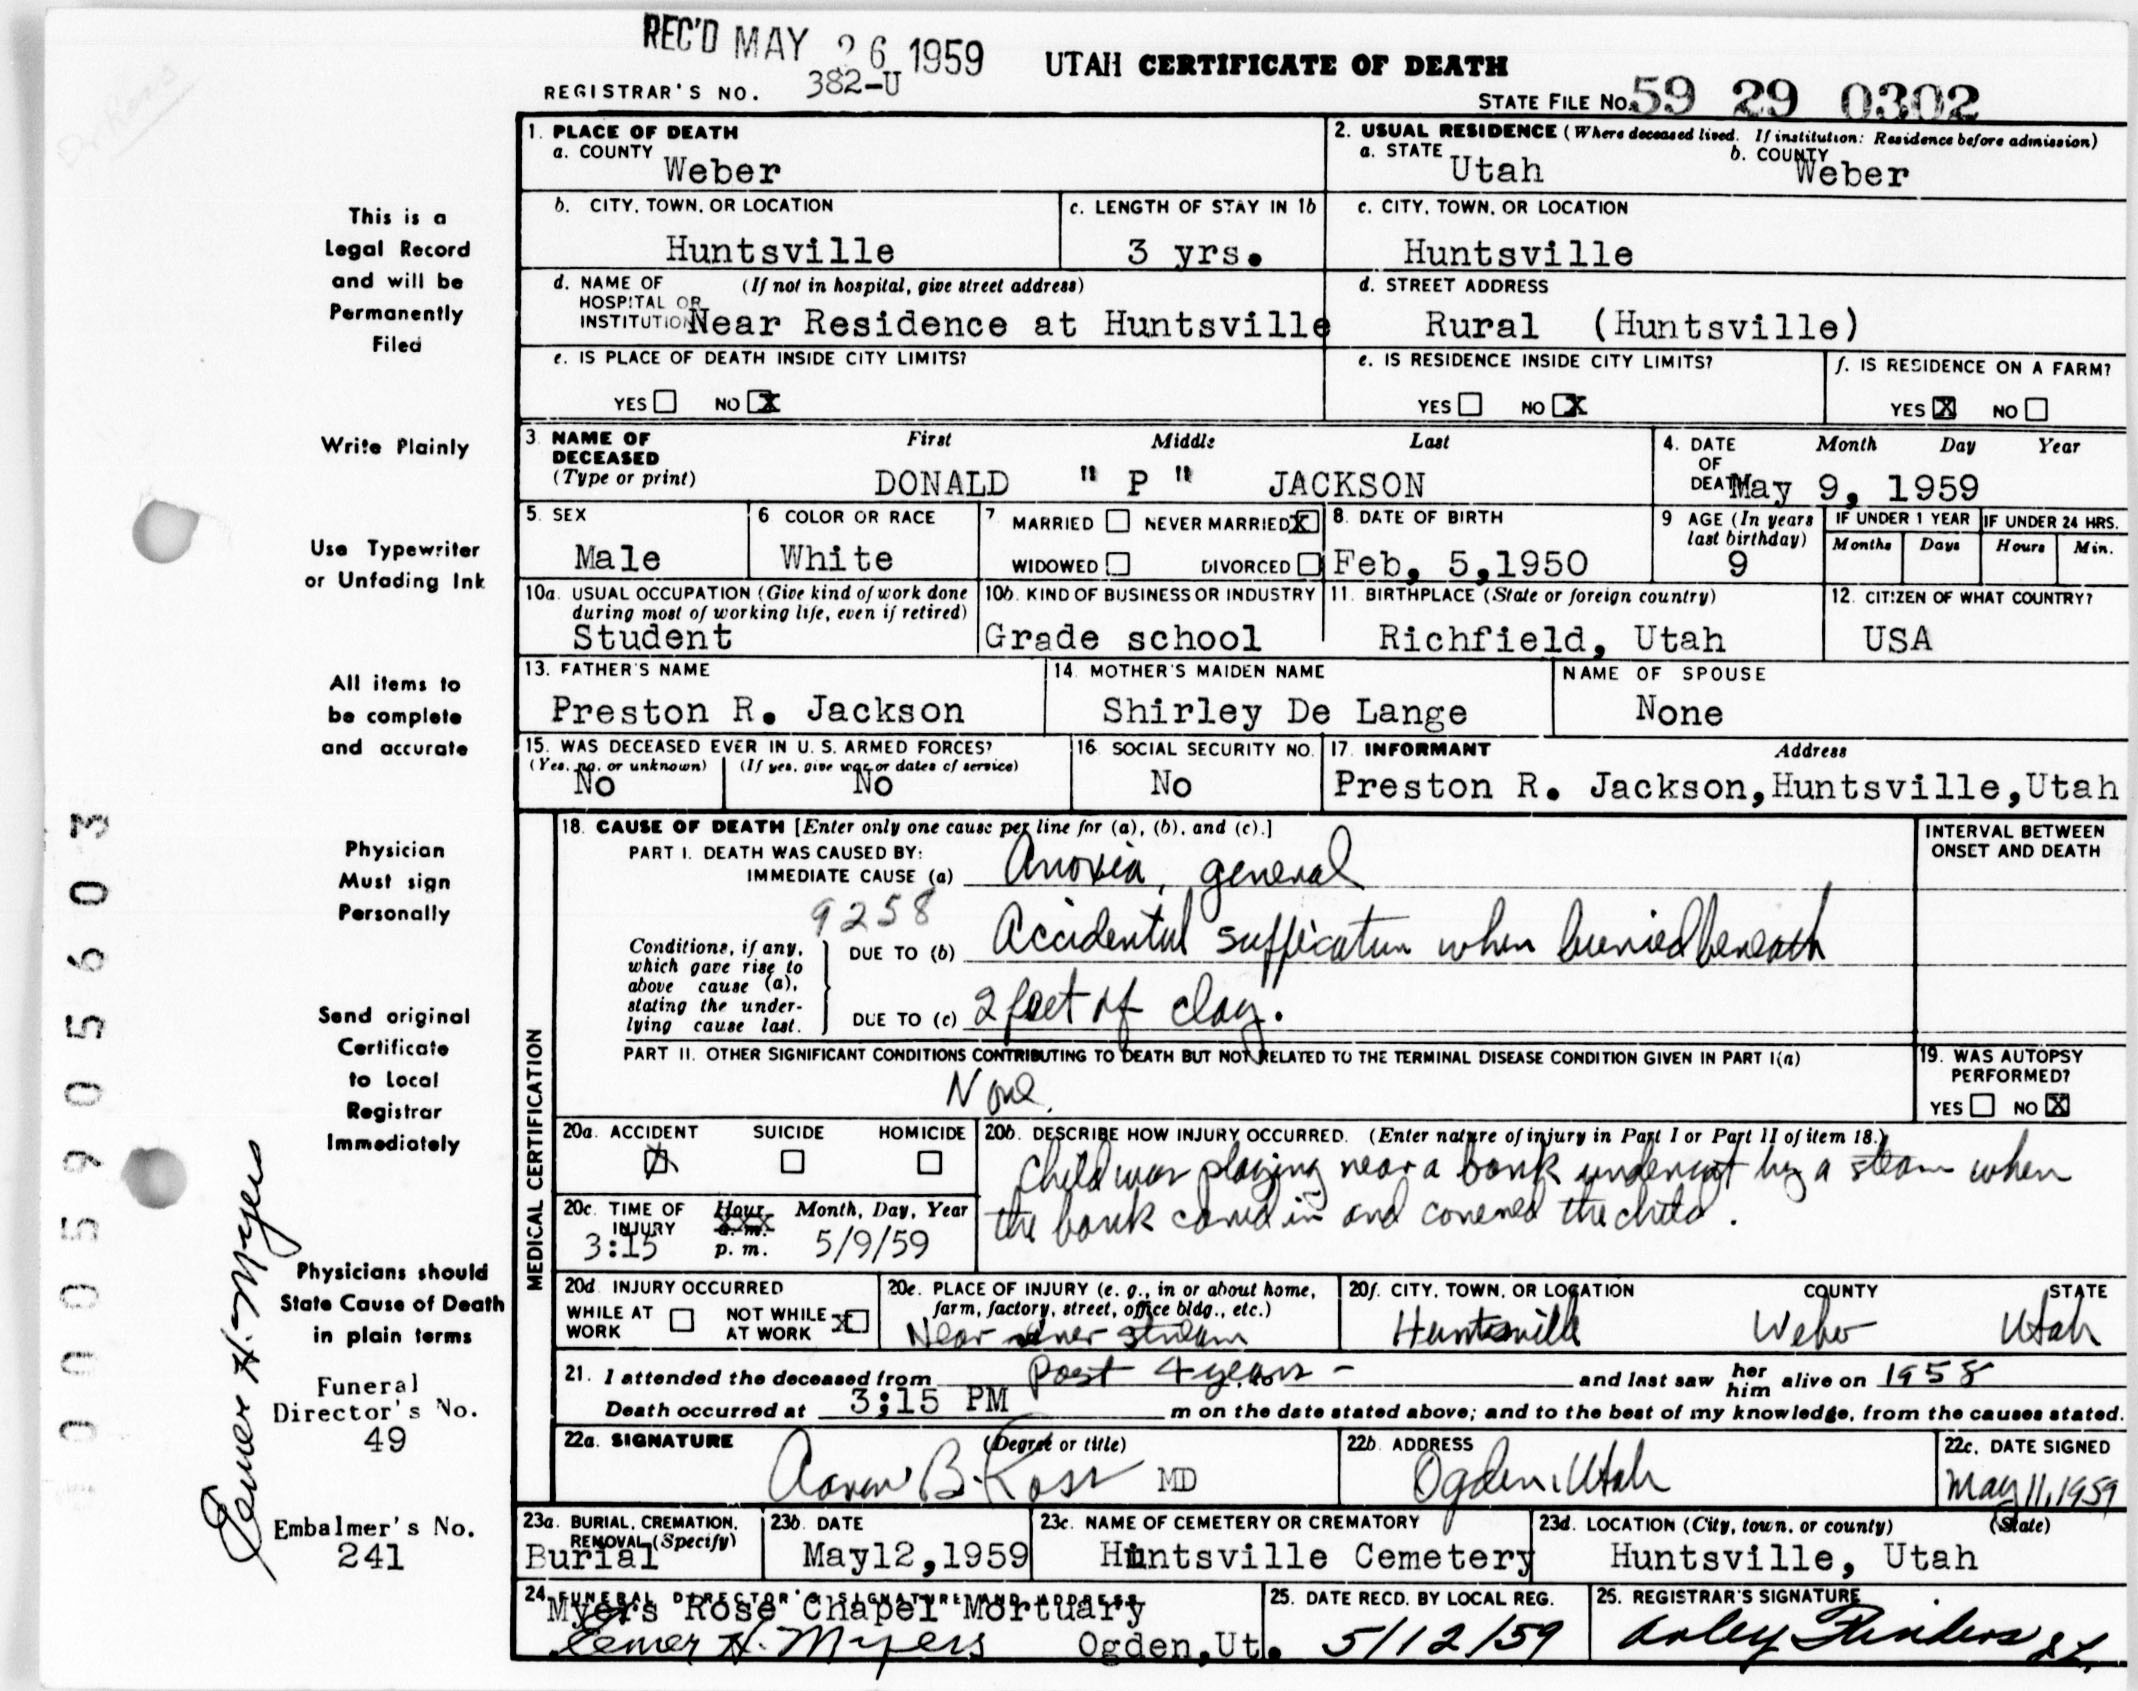 REC'D MAY 26 1959
UTAH CERTIFICATE OF DEATH
REGISTRAR'S NO. 382-U
STATE FILE NO. 59 29 0302
This is a
Legal Record
and will be
Permanently
Filed
Write Plainly
Use Typewriter
or Unfading Ink
All items to
be complete
and accurate
Physician
Must sign
Personally
Send original
Certificate
to Local
Registrar
Immediately
Physicians should
State Cause of Death
in plain terms
Funeral
Director's No.
49
Embalmer's No.
241
Elmer H. Myers
0005905603
1. PLACE OF DEATH
a. COUNTY Weber
2. USUAL RESIDENCE (Where deceased lived. If institution: Residence before admission)
a. STATE Utah b. COUNTY Weber
b. CITY, TOWN, OR LOCATION Huntsville
c. LENGTH OF STAY IN 1b 3 yrs.
c. CITY, TOWN, OR LOCATION Huntsville
d. NAME OF HOSPITAL OR INSTITUTION (If not in hospital, give street address) Near Residence at Huntsville
d. STREET ADDRESS Rural (Huntsville)
e. IS PLACE OF DEATH INSIDE CITY LIMITS?
YES NO X
e. IS RESIDENCE INSIDE CITY LIMITS?
YES NO X
f. IS RESIDENCE ON A FARM?
YES X NO
3. NAME OF DECEASED (Type or print) First Middle Last
DONALD "P" JACKSON
4. DATE OF DEATH Month Day Year
May 9, 1959
5. SEX Male
6 COLOR OR RACE White
7 MARRIED NEVER MARRIED X
WIDOWED DIVORCED
8. DATE OF BIRTH Feb, 5,1950
9 AGE (In years last birthday) 9
IF UNDER 1 YEAR Months Days
IF UNDER 24 HRS. Hours Min.
10a. USUAL OCCUPATION (Give kind of work done during most of working life, even if retired) Student
10b. KIND OF BUSINESS OR INDUSTRY Grade school
11. BIRTHPLACE (State or foreign country) Richfield, Utah
12. CITIZEN OF WHAT COUNTRY? USA
13. FATHER'S NAME Preston R. Jackson
14. MOTHER'S MAIDEN NAME Shirley De Lange
NAME OF SPOUSE None
15. WAS DECEASED EVER IN U. S. ARMED FORCES?
(Yes, no, or unknown) No (If yes, give war or dates of service) No
16. SOCIAL SECURITY NO. No
17. INFORMANT Address
Preston R. Jackson,Huntsville,Utah
MEDICAL CERTIFICATION
18. CAUSE OF DEATH [Enter only one cause per line for (a), (b), and (c).]
INTERVAL BETWEEN ONSET AND DEATH
PART I. DEATH WAS CAUSED BY:
IMMEDIATE CAUSE (a) Anoxia, general
9258
Conditions, if any, which gave rise to above cause (a), stating the underlying cause last.
DUE TO (b) Accidental suffication when buried beneath
DUE TO (c) 2 feet of clay.
PART II. OTHER SIGNIFICANT CONDITIONS CONTRIBUTING TO DEATH BUT NOT RELATED TO THE TERMINAL DISEASE CONDITION GIVEN IN PART I(a)
None.
19. WAS AUTOPSY PERFORMED?
YES NO X
20a. ACCIDENT X SUICIDE HOMICIDE
20b. DESCRIBE HOW INJURY OCCURRED. (Enter nature of injury in Part I or Part II of item 18.)
Child was playing near a bank undercut by a steam when
the bank caved in and covered the child.
20c. TIME OF INJURY Hour a. m. p. m. Month, Day, Year
3:15 5/9/59
20d. INJURY OCCURRED
WHILE AT WORK NOT WHILE AT WORK X
20e. PLACE OF INJURY (e. g., in or about home, farm, factory, street, office bldg., etc.)
Near river stream
20f. CITY, TOWN, OR LOCATION COUNTY STATE
Huntsville Weber Utah
21. I attended the deceased from past 4 years - and last saw her him alive on 1958
Death occurred at 3:15 PM m on the date stated above; and to the best of my knowledge, from the causes stated.
22a. SIGNATURE (Degree or title)
Aaron B. Ross MD
22b. ADDRESS Ogden, Utah
22c. DATE SIGNED May 11, 1959
23a. BURIAL, CREMATION, REMOVAL (Specify) Burial
23b. DATE May12,1959
23c. NAME OF CEMETERY OR CREMATORY Huntsville Cemetery
23d. LOCATION (City, town, or county) (State) Huntsville, Utah
24. FUNERAL DIRECTOR'S SIGNATURE AND ADDRESS
Myers Rose Chapel Mortuary
Elmer H. Myers Ogden,Ut.
25. DATE RECD. BY LOCAL REG. 5/12/59
25. REGISTRAR'S SIGNATURE